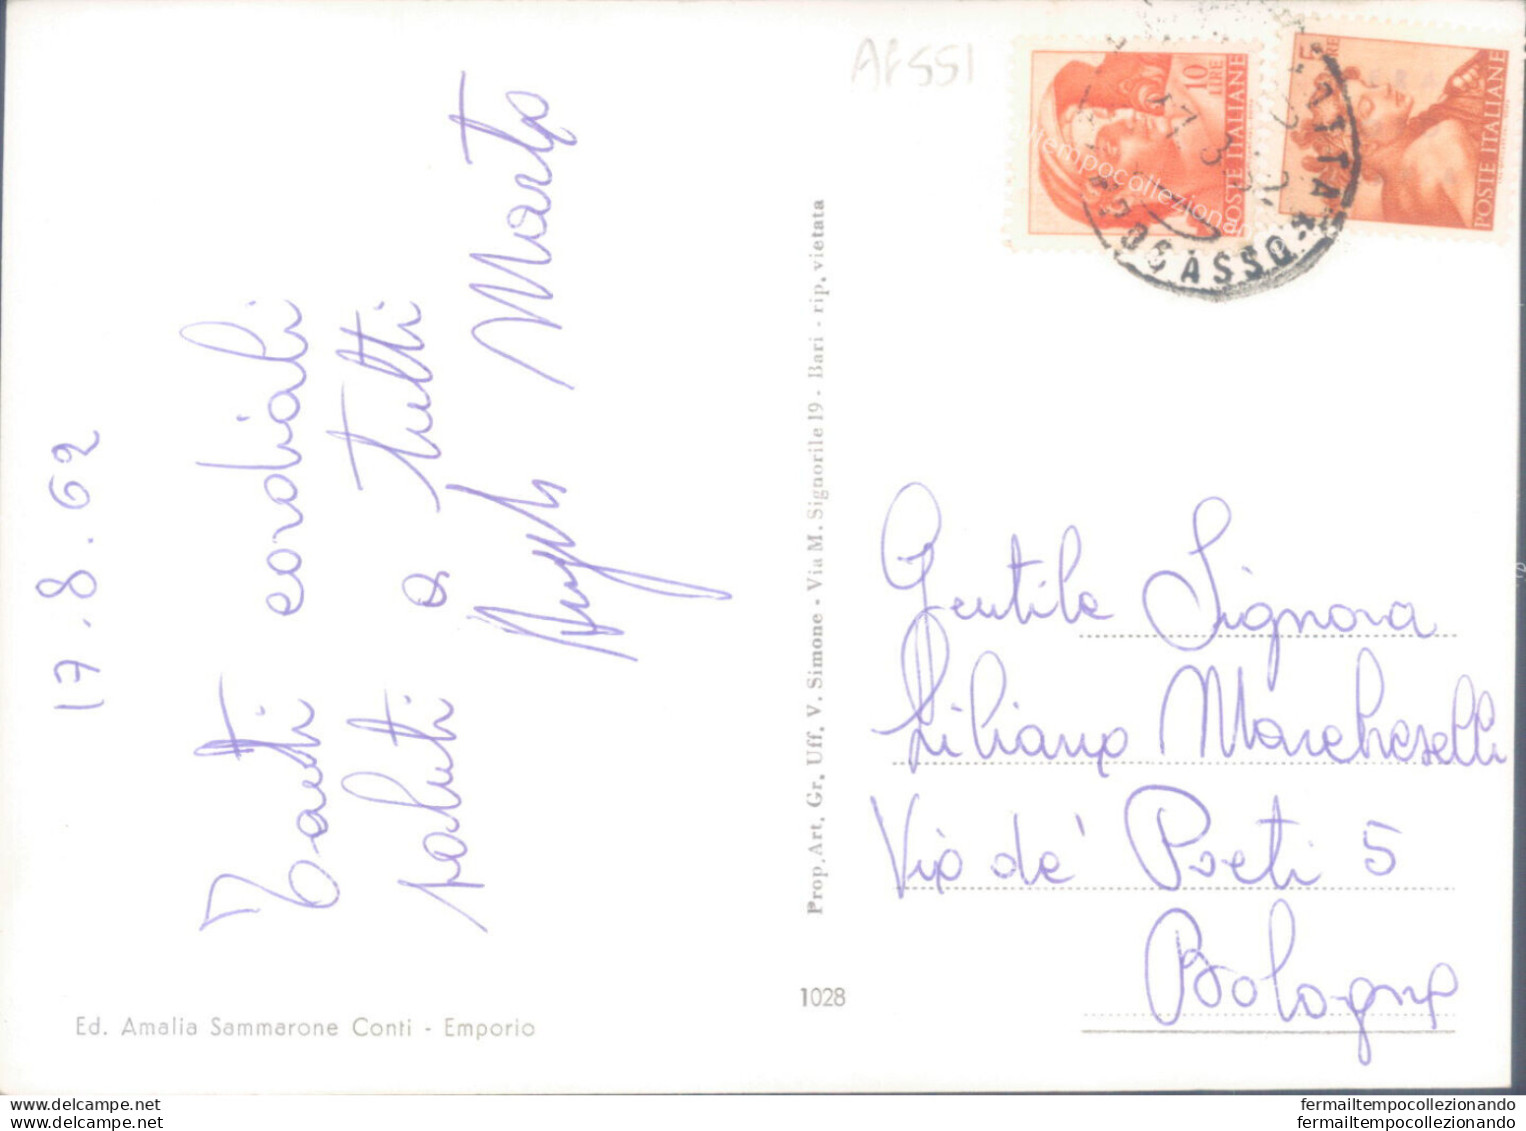 17.8.62
Tanti cordiali
saluti a tutti
Marta
Prop. Art. Gr. Uff. V. Simone - Via M. Signorile 19 - Bari - rip. vietata
1028
Ed. Amalia Sammarone Conti - Emporio
AF551
10 LIRE
POSTE ITALIANE
5 LIRE
POSTE ITALIANE
tempocollezion
Gentile Signora
Liliana Marcheselli
Via de' Poeti 5
Bologna
fermailtempocollezionando
fermailtempocollezionando
fermailtempocollezionando
fermailtempocollezionando